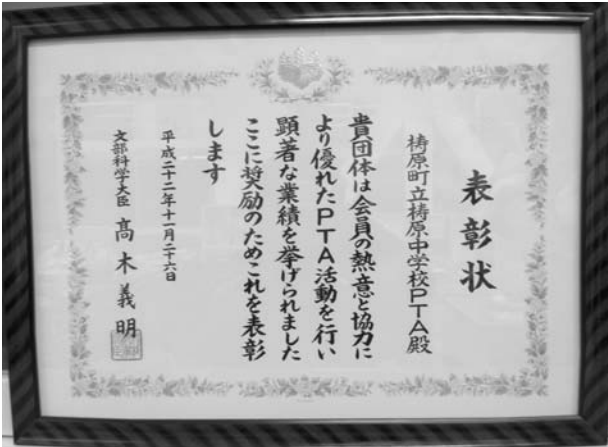 表彰状
梼原町立梼原中学校PTA殿
貴団体は会員の熱意と協力に
より優れたPTA活動を行い
顕著な業績を挙げられました
ここに奨励のためこれを表彰
します
平成二十二年十一月二十六日
文部科学大臣 髙木義明